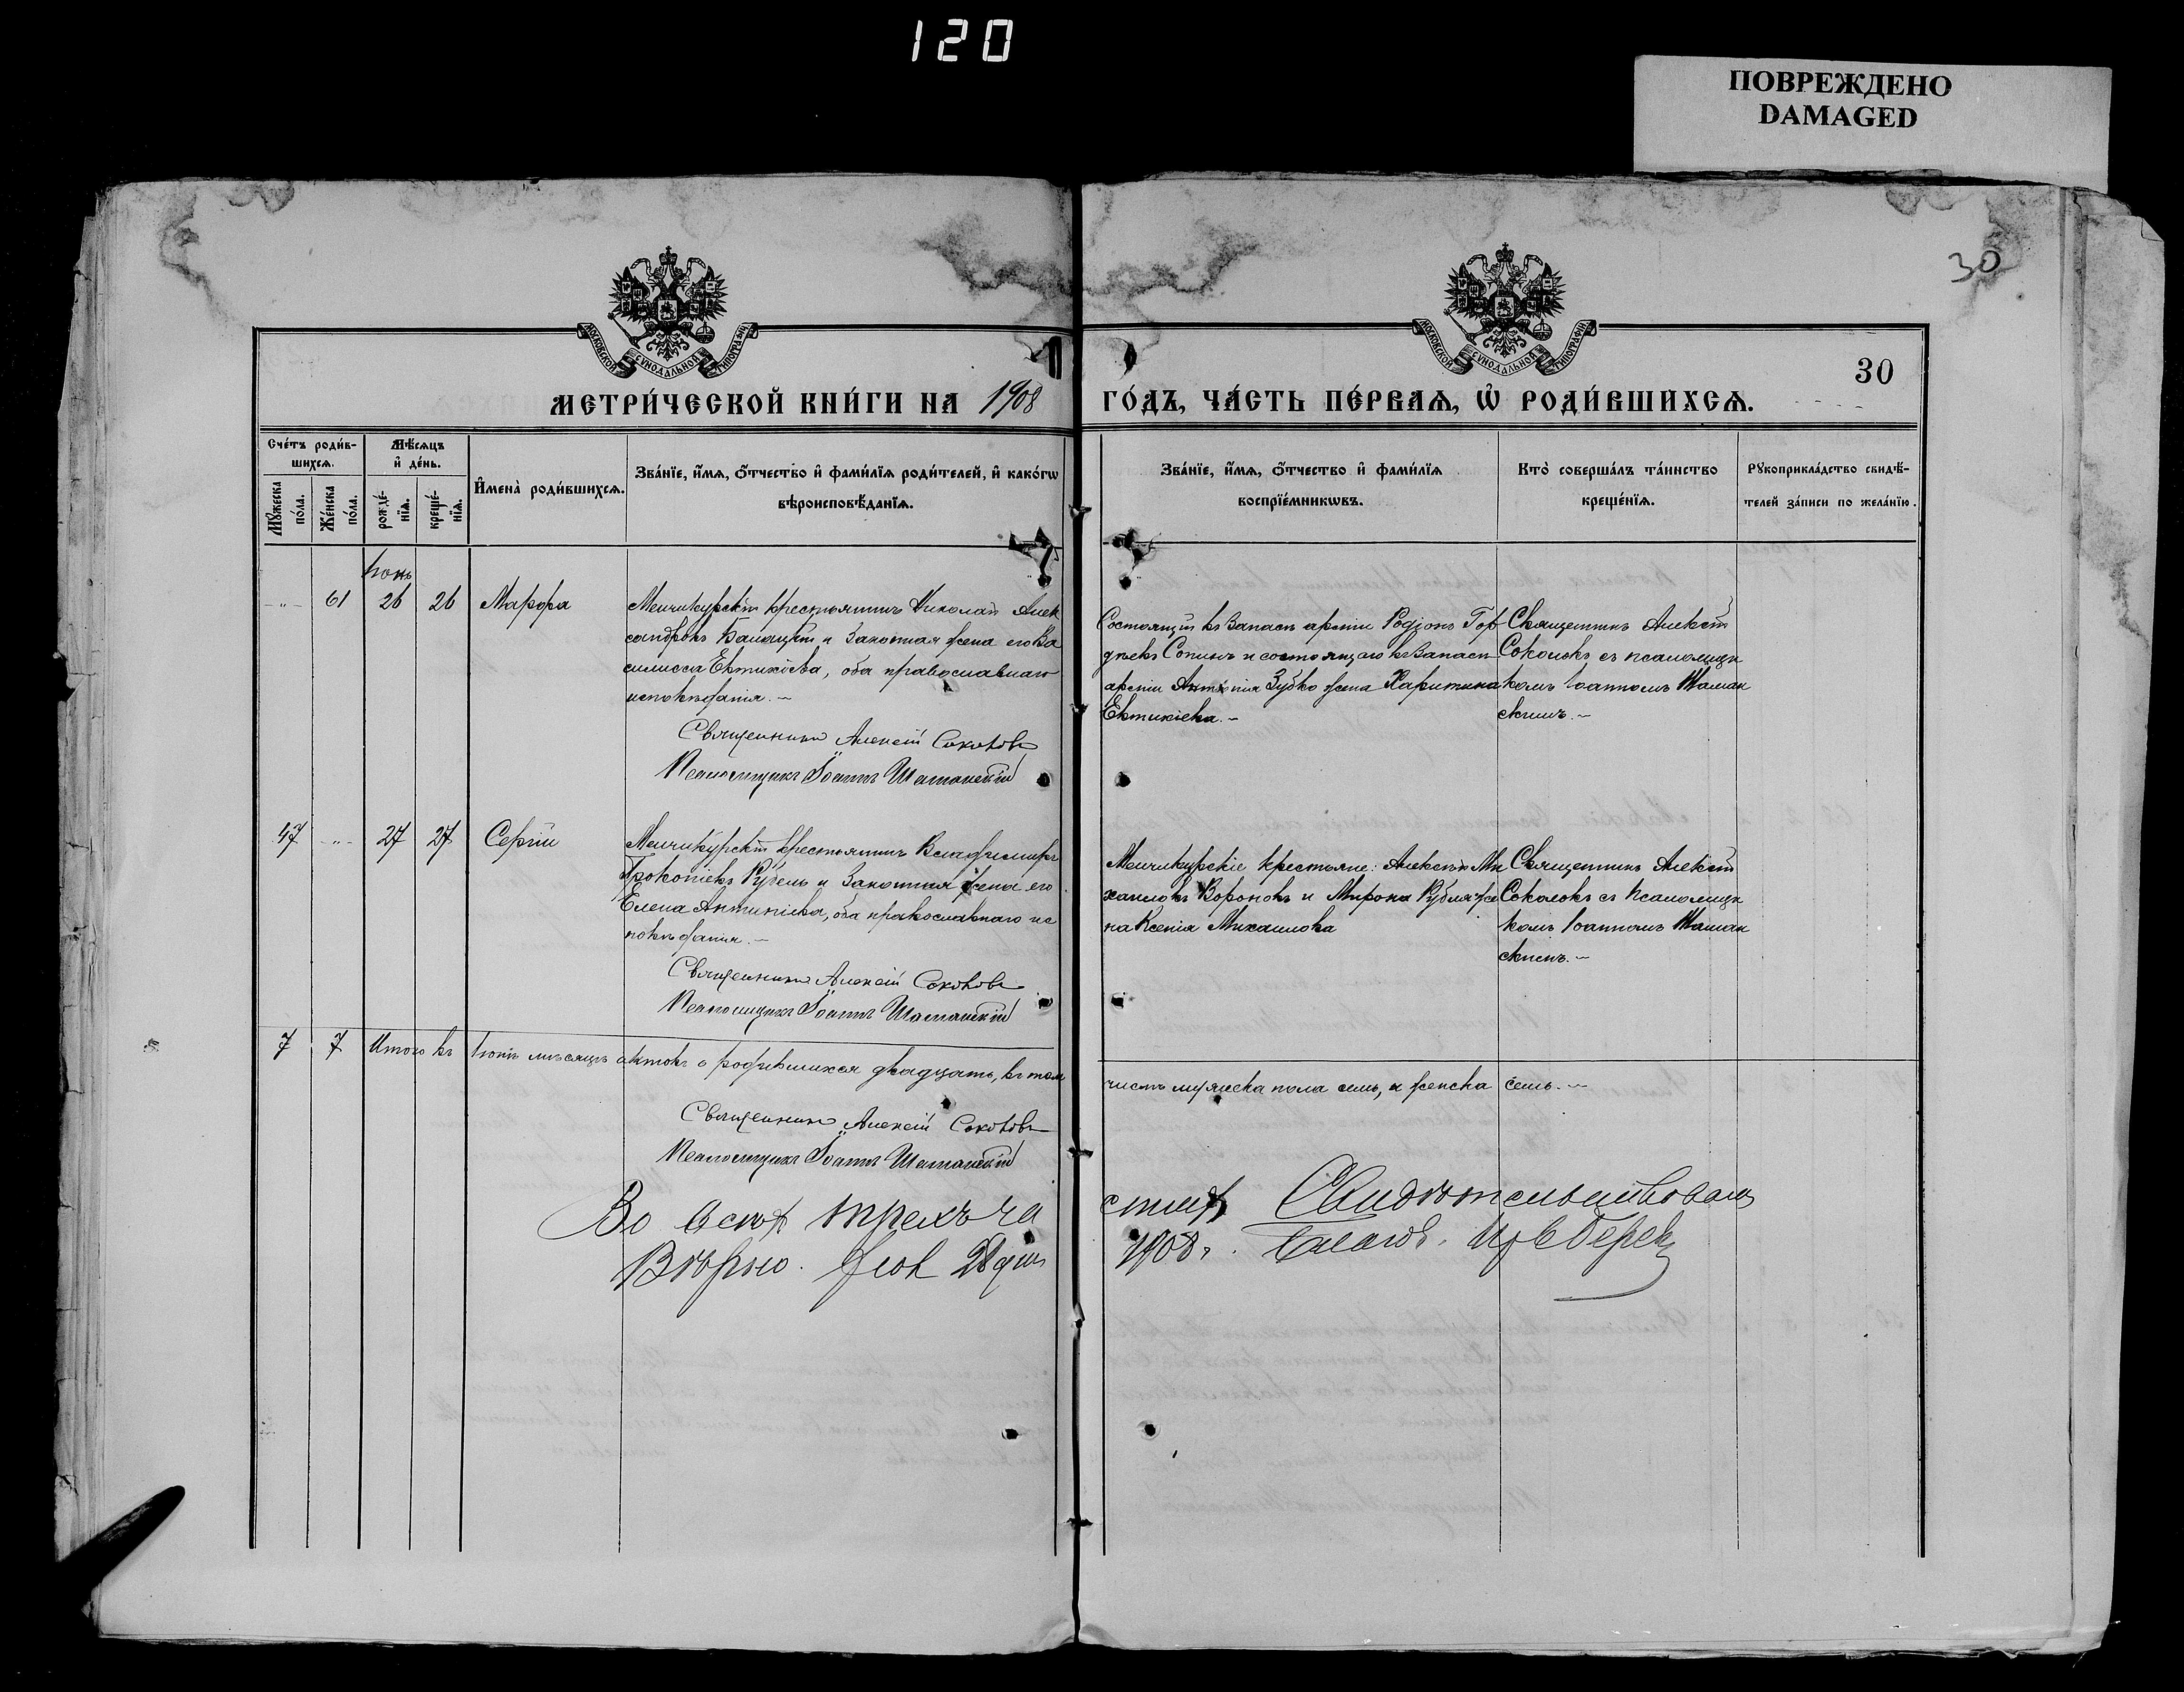 120
ПОВРЕЖДЕНО
DAMAGED
30
МОСКОВСКОЙ СУНОДАЛЬНОЙ ТИПОГРАФІИ
МОСКОВСКОЙ СУНОДАЛЬНОЙ ТИПОГРАФІИ
30
МЕТРИ́ЧЕСКОЙ КНИ́ГИ НА 1908 ГО́ДЪ, ЧА́СТЬ ПЕ́РВАѦ, Ѡ҆ РОДИ́ВШИХСѦ.
Сче́тъ роди́в-
шихсѧ.
Мꙋ́жеска по́ла.
Же́нска по́ла.
Мѣ́сѧцъ
и҆ де́нь.
рожде́-
нїѧ.
креще́-
нїѧ.
И҆мена̀ роди́вшихсѧ.
Зва́нїе, и҆́мѧ, ѻ҆́тчество и҆ фами́лїѧ роди́телей, и҆ како́гѡ
вѣроисповѣ́данїѧ.
Зва́нїе, и҆́мѧ, ѻ҆́тчество и҆ фами́лїѧ
воспрїе́мникѡвъ.
Кто̀ соверша́лъ та́инство
креще́нїѧ.
Рꙋкоприкла́дство свидѣ́-
телей за́писи по жела́нїю.
Іюнь
-"- 61 26 26 Марфа
Менчикурскій крестьянинъ Николай Алек
сандровъ Балацкій и законная жена его Ва
силисса Евтихіева, оба православнаго
исповѣданія.–
Священникъ Алексій Соколовъ
Псаломщикъ Іоаннъ Шаманскій
Состоящій въ запасѣ арміи Родіонъ Гор
дѣевъ Сопинъ и состоящаго въ запасѣ
арміи Антонія Зубко жена Харитина
Евтихіева.–
Священникъ Алексій
Соколовъ съ псаломщи
комъ Іоанномъ Шаман
скимъ.–
47 -"- 27 27 Сергій
Менчикурскій крестьянинъ Владимиръ
Прокопіевъ Рубель и законная жена его
Елена Антипіева, оба православнаго ис
повѣданія.–
Священникъ Алексій Соколовъ
Псаломщикъ Іоаннъ Шаманскій
Менчикурскіе крестьяне: Алексѣй Ми
хаиловъ Вороновъ и Мирона Рубля же
на Ксенія Михаилова
Священникъ Алексій
Соколовъ съ псаломщи
комъ Іоанномъ Шаман
скимъ.–
7 7 Итого въ Іюнѣ мѣсяцѣ актовъ о родившихся двадцать, въ том
числѣ мужеска пола семь, и женска семь.–
Священникъ Алексій Соколовъ
Псаломщикъ Іоаннъ Шаманскій
Во всѣхъ трехъ ча
стяхъ Свидѣтельствовалъ
Вѣрно. 28 дня
1908 г. Благоч.